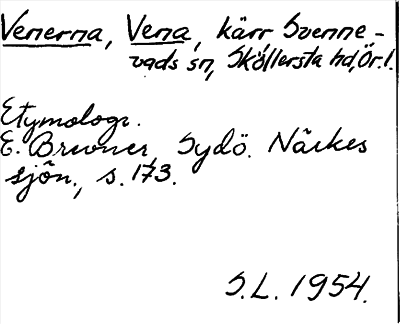 Venerna, Vena, kärr Svenne-
vads sn, Sköllersta hd, Ör. l.
Etymologi.
E. Brunner, Sydö. Närkes
sjön., s. 173.
S.L. 1954.